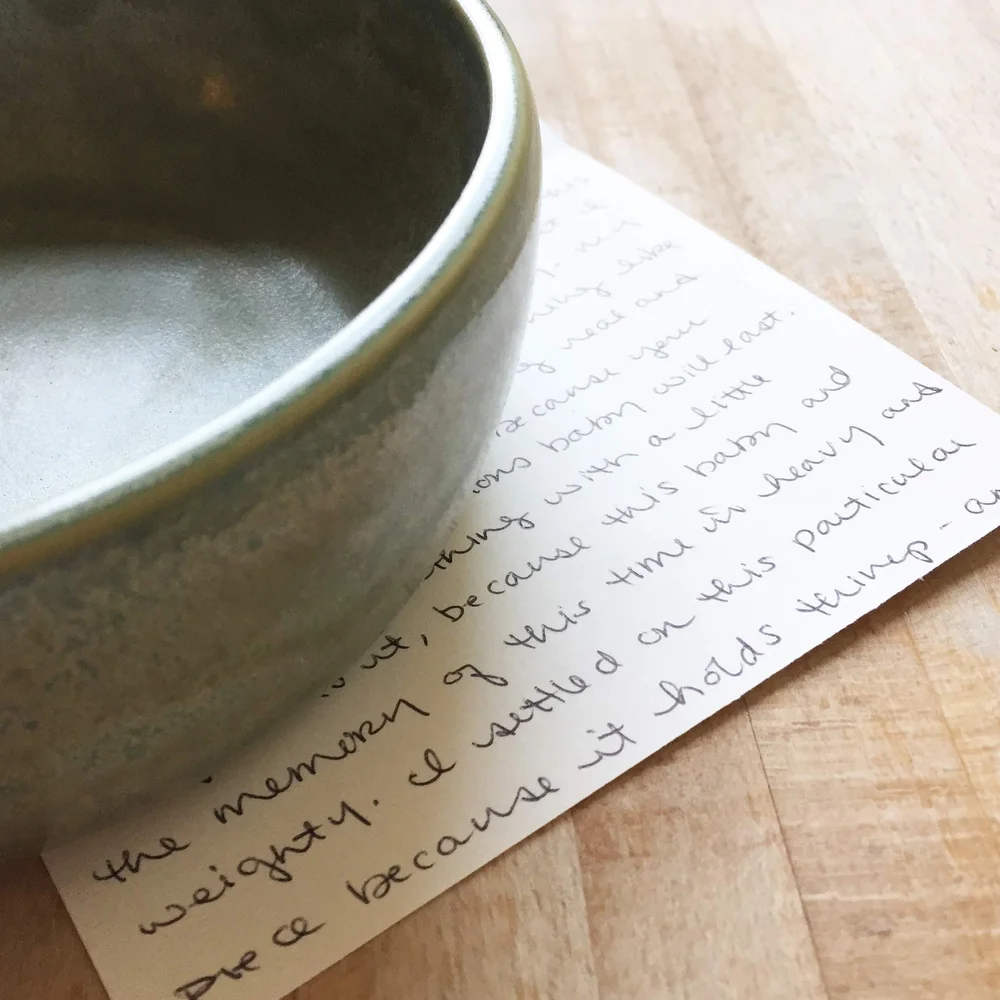 like
real and
because your
baby will last.
with a little
because this baby and
the memory of this time is heavy and
weighty. I settled on this particular
piece because it holds things -